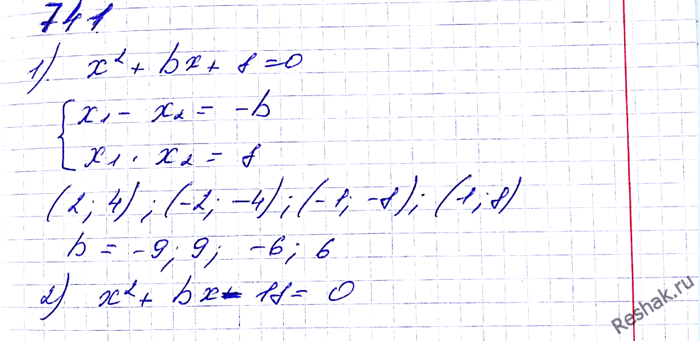 741.
1) x² + bx + 8 = 0
{ x₁ - x₂ = -b
x₁ · x₂ = 8
(2; 4); (-2; -4); (-1; -8); (1; 8)
b = -9; 9; -6; 6
2) x² + bx - 18 = 0
Reshak.ru